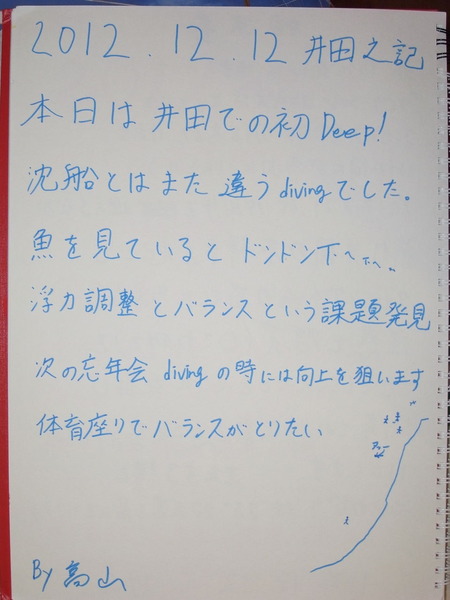 2012.12.12 井田之記
本日は井田での初Deep!
沈船とはまた違うdivingでした。
魚を見ているとドンドン下へ下へ。
浮力調整とバランスという課題発見
次の忘年会divingの時には向上を狙います
体育座りでバランスがとりたい
By 高山